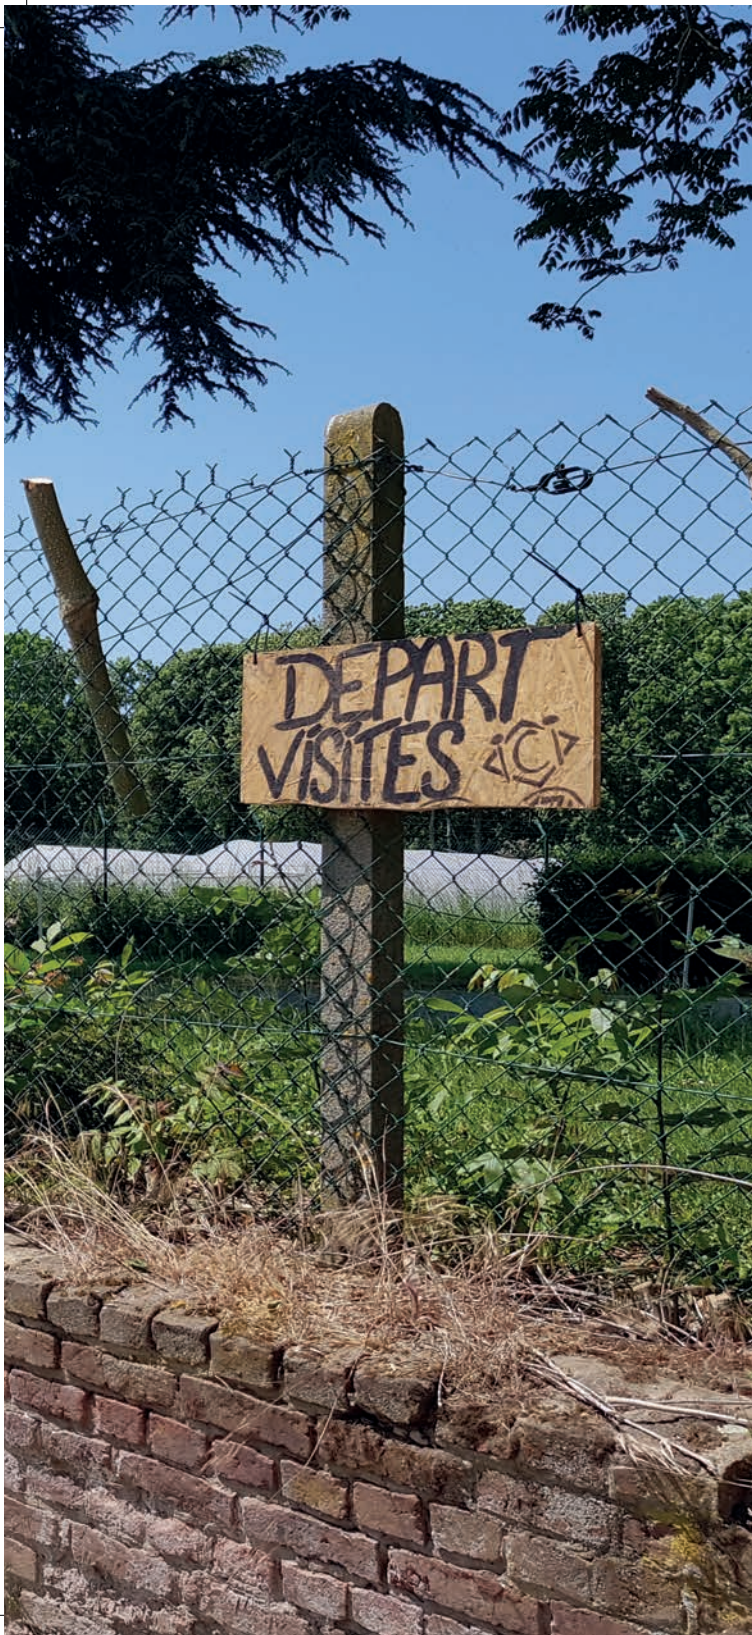 DÉPART
VISITES ICI